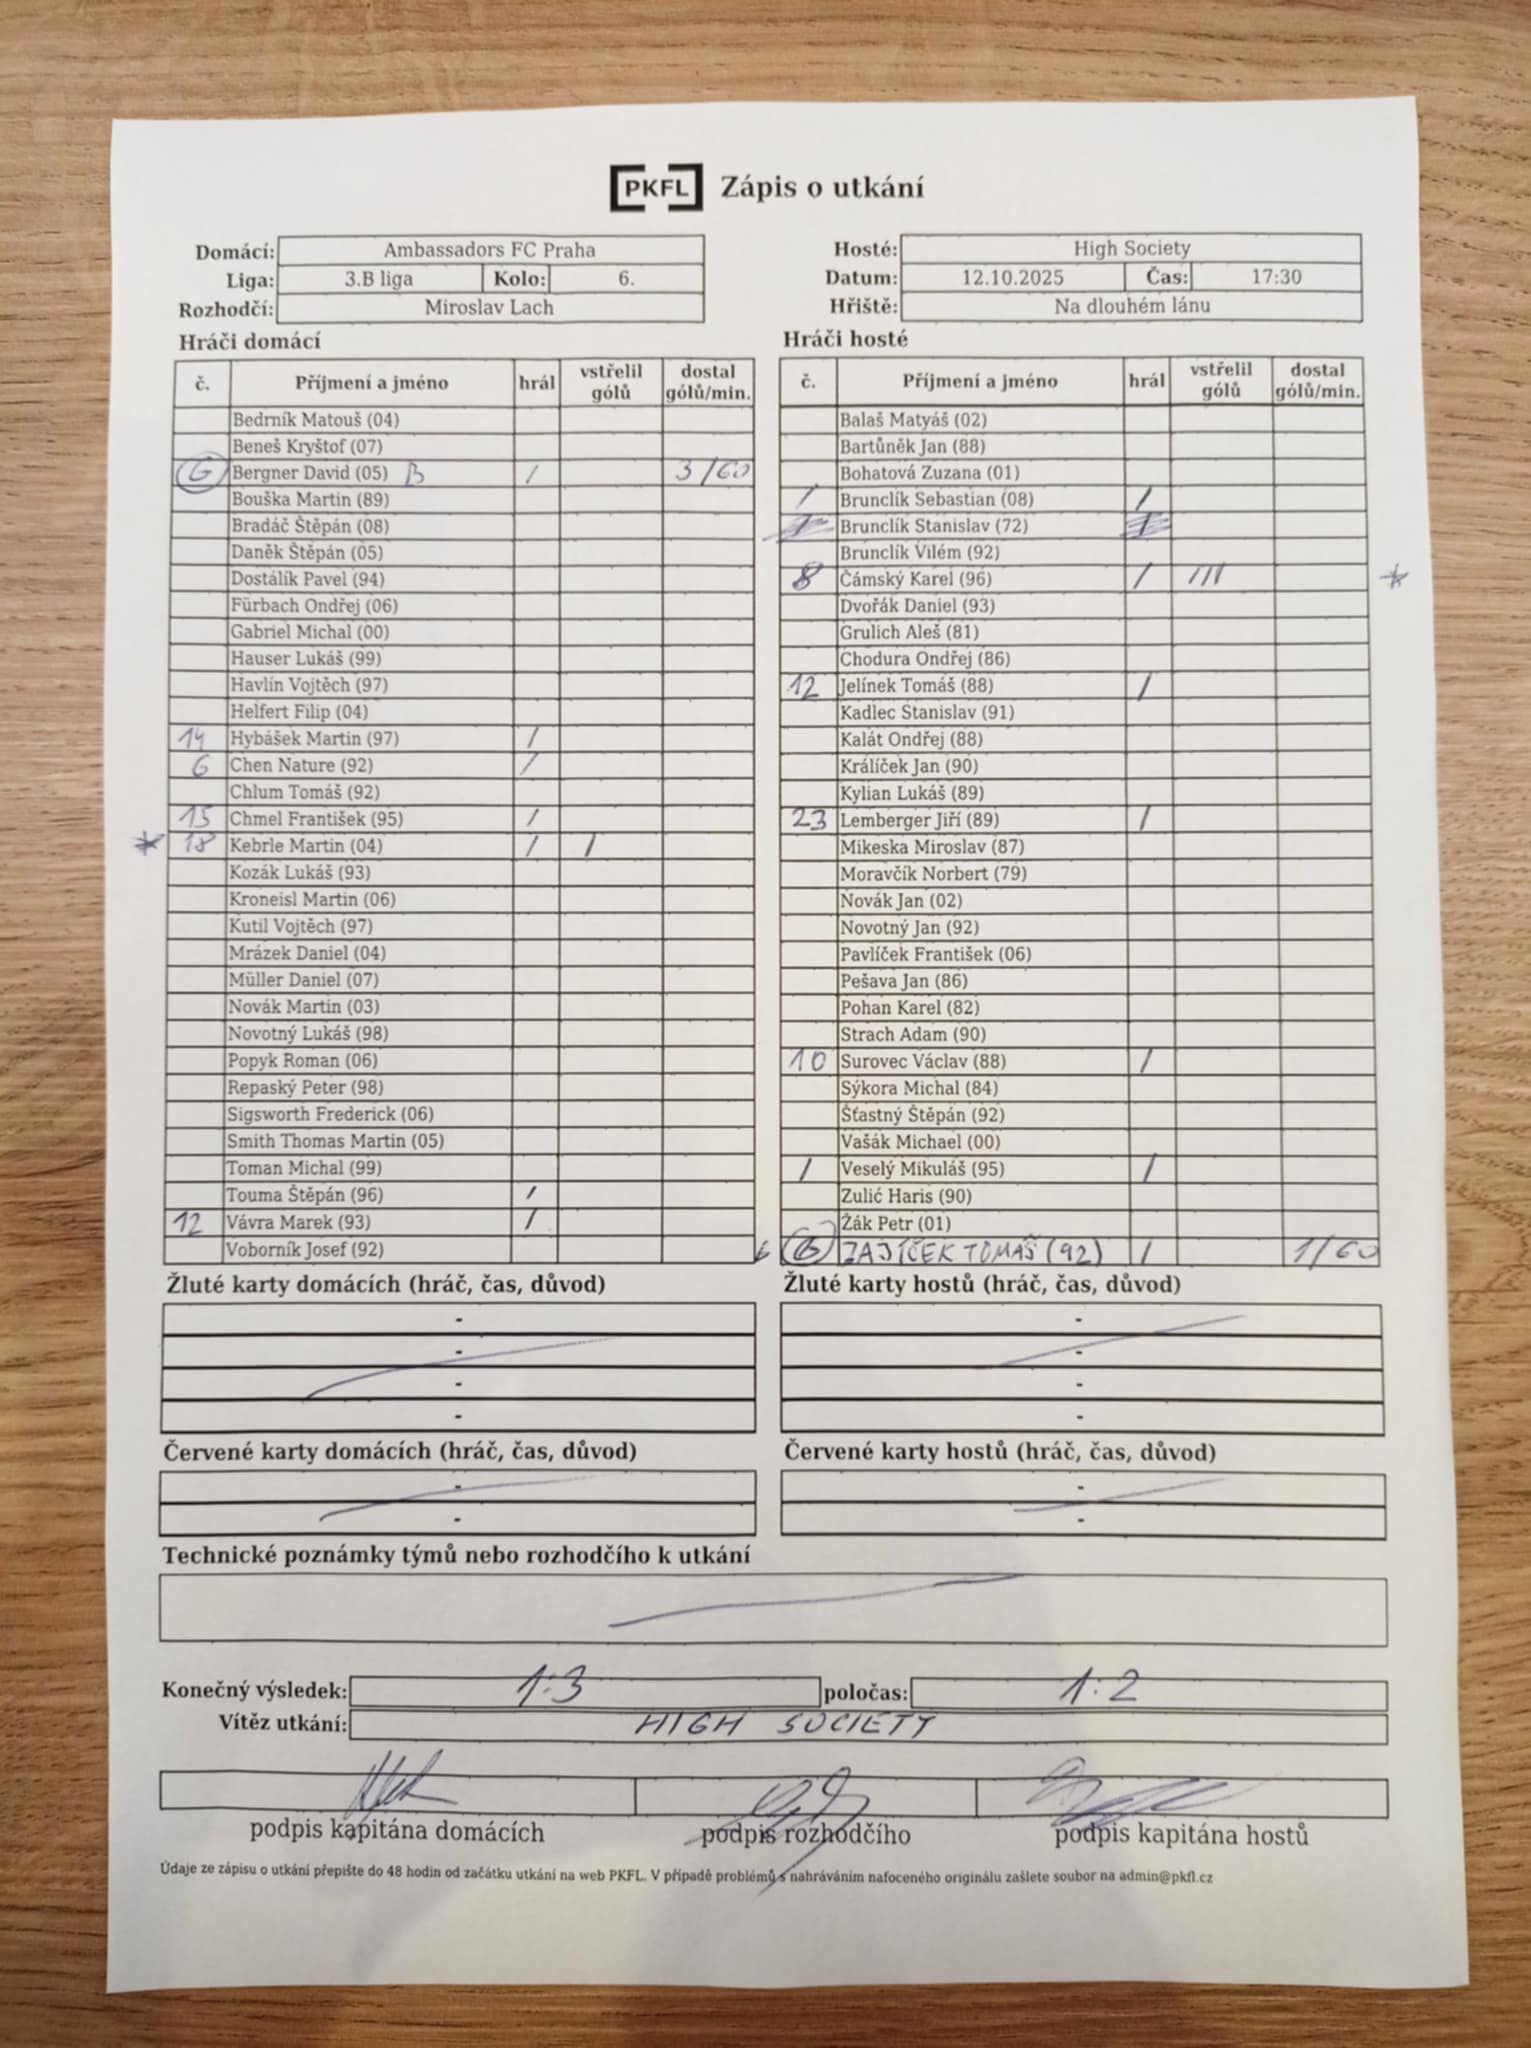 PKFL Zápis o utkání
Domácí: Ambassadors FC Praha
Liga: 3.B liga Kolo: 6.
Rozhodčí: Miroslav Lach
Hosté: High Society
Datum: 12.10.2025 Čas: 17:30
Hřiště: Na dlouhém lánu
Hráči domácí
č. Příjmení a jméno hrál vstřelil gólů dostal gólů/min.
Bedrník Matouš (04)
Beneš Kryštof (07)
G Bergner David (05) B / 3/60
Bouška Martin (89)
Bradáč Štěpán (08)
Daněk Štěpán (05)
Dostálík Pavel (94)
Fürbach Ondřej (06)
Gabriel Michal (00)
Hauser Lukáš (99)
Havlín Vojtěch (97)
Helfert Filip (04)
14 Hybášek Martin (97) /
6 Chen Nature (92) /
Chlum Tomáš (92)
15 Chmel František (95) /
* 18 Kebrle Martin (04) / /
Kozák Lukáš (93)
Kroneisl Martin (06)
Kutil Vojtěch (97)
Mrázek Daniel (04)
Müller Daniel (07)
Novák Martin (03)
Novotný Lukáš (98)
Popyk Roman (06)
Repaský Peter (98)
Sigsworth Frederick (06)
Smith Thomas Martin (05)
Toman Michal (99)
Touma Štěpán (96) /
12 Vávra Marek (93) /
Voborník Josef (92)
Hráči hosté
č. Příjmení a jméno hrál vstřelil gólů dostal gólů/min.
Balaš Matyáš (02)
Bartůněk Jan (88)
Bohatová Zuzana (01)
/ Brunclík Sebastian (08) /
Brunclík Stanislav (72)
Brunclík Vilém (92)
8 Čámský Karel (96) / /// *
Dvořák Daniel (93)
Grulich Aleš (81)
Chodura Ondřej (86)
12 Jelínek Tomáš (88) /
Kadlec Stanislav (91)
Kalát Ondřej (88)
Králíček Jan (90)
Kylian Lukáš (89)
23 Lemberger Jiří (89) /
Mikeska Miroslav (87)
Moravčík Norbert (79)
Novák Jan (02)
Novotný Jan (92)
Pavlíček František (06)
Pešava Jan (86)
Pohan Karel (82)
Strach Adam (90)
10 Surovec Václav (88) /
Sýkora Michal (84)
Šťastný Štěpán (92)
Vašák Michael (00)
/ Veselý Mikuláš (95) /
Zulić Haris (90)
Žák Petr (01)
ZAJÍČEK TOMÁŠ (92) / 1/60
Žluté karty domácích (hráč, čas, důvod)
-
-
-
-
Žluté karty hostů (hráč, čas, důvod)
-
-
-
-
Červené karty domácích (hráč, čas, důvod)
-
-
Červené karty hostů (hráč, čas, důvod)
-
-
Technické poznámky týmů nebo rozhodčího k utkání
Konečný výsledek: 1:3 poločas: 1:2
Vítěz utkání: HIGH SOCIETY
podpis kapitána domácích podpis rozhodčího podpis kapitána hostů
Údaje ze zápisu o utkání přepište do 48 hodin od začátku utkání na web PKFL. V případě problémů s nahráváním nafoceného originálu zašlete soubor na admin@pkfl.cz